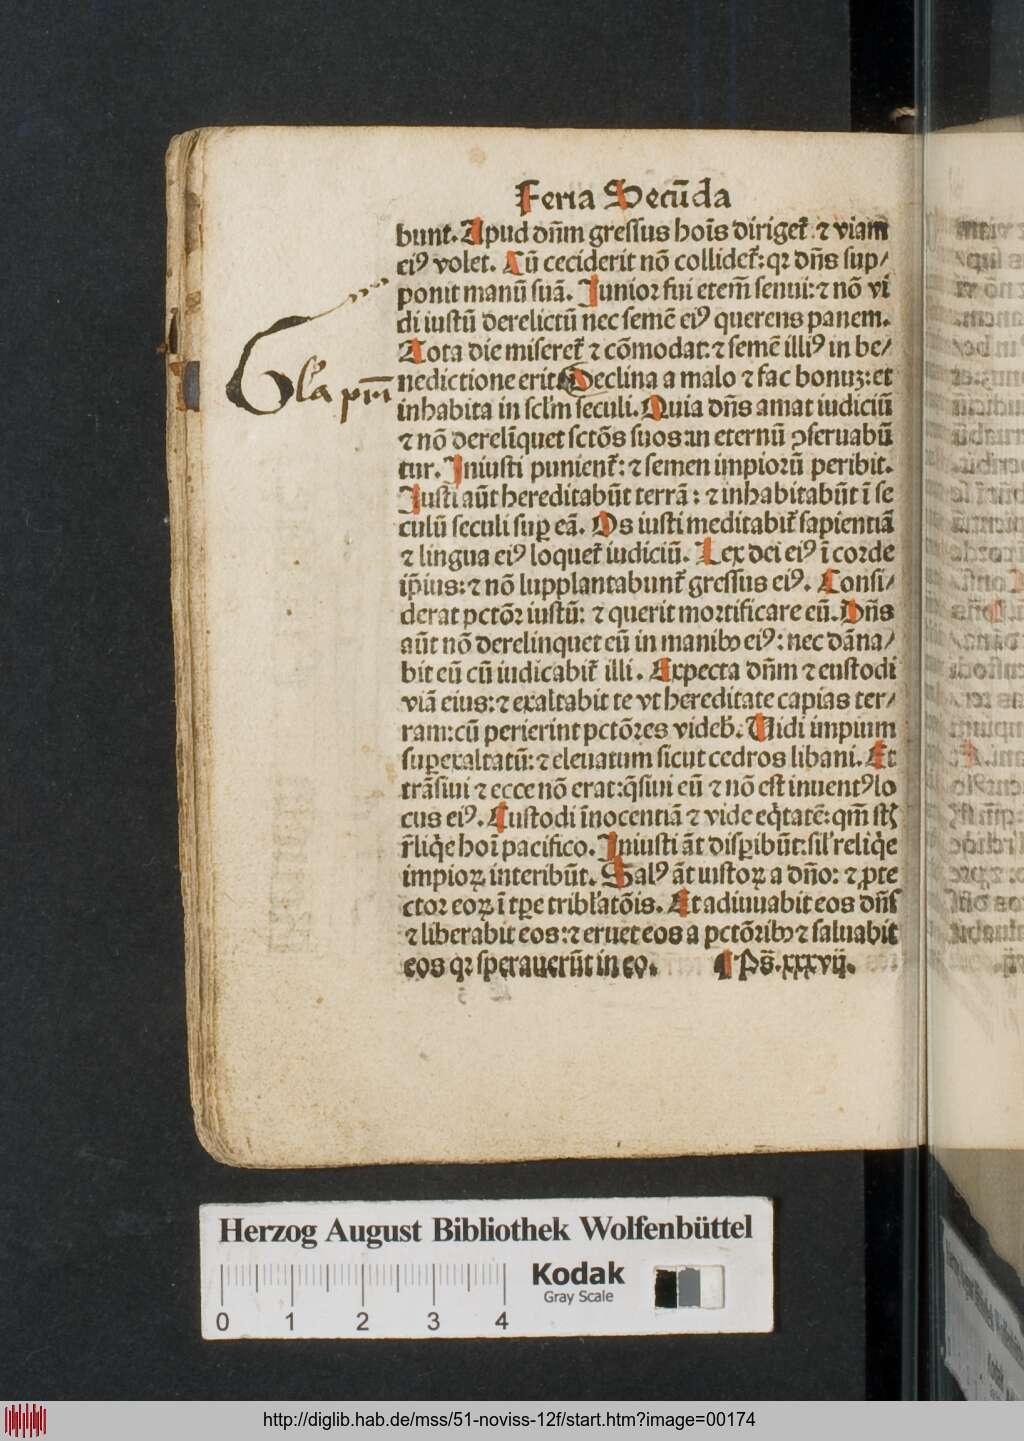 Feria Secūda
bunt. Apud dn̄m gressus hoīs diriget᷑ ⁊ viam
eiꝰ volet. Cū ceciderit nō collidet᷑: qꝛ dn̄s sup/
ponit manū suā. Junior fui etem̄ senui: ⁊ nō vi
di iustū derelictū nec semē eiꝰ querens panem.
Tota die miseret᷑ ⁊ cōmodat: ⁊ semē illiꝰ in be/
nedictione erit Declina a malo ⁊ fac bonuꝫ: et
Gl'a pr̄i
inhabita in scl'm seculi. Quia dn̄s amat iudiciū
⁊ nō derelīquet sctōs suos: in eternū ꝯseruabū
tur. Iniusti punient᷑: ⁊ semen impiorū peribit.
Justi aūt hereditabūt terrā: ⁊ inhabitabūt ī se
culū seculi suꝑ eā. Os iusti meditabit᷑ sapientiā
⁊ lingua eiꝰ loquet᷑ iudiciū. Lex dei eiꝰ ī corde
ip̄ius: ⁊ nō supplantabunt᷑ gressus eiꝰ. Consi/
derat pctōꝛ iustū: ⁊ querit mortificare eū. Dn̄s
aūt nō derelinquet eū in manibꝫ eiꝰ: nec dāna/
bit eū cū iudicabit᷑ illi. Expecta dn̄m ⁊ custodi
viā eius: ⁊ exaltabit te vt hereditate capias ter/
ram: cū perierint pctōꝛes videb̄. Vidi impium
suꝑexaltatū: ⁊ eleuatum sicut cedros libani. Et
trāsiui ⁊ ecce nō erat: q̄siui eū ⁊ nō est inuentꝰ lo
cus eiꝰ. Custodi īnocentiā ⁊ vide eq̇tatē: qm̄ st̄
r̄liq̇e hoī pacifico. Iniusti āt disꝑibūt: sil' reliq̇e
impioꝝ interibūt. Salꝰ āt iustoꝝ a dn̄o: ⁊ ꝓte
ctor eoꝝ ī tꝑe tribl'atōis. Et adiuuabit eos dn̄s
⁊ liberabit eos: ⁊ eruet eos a pctōribꝫ ⁊ saluabit
eos qꝛ sperauerūt in eo. ¶ Ps̄. xxxvij.
Herzog August Bibliothek Wolfenbüttel
Kodak
Gray Scale
0 1 2 3 4
http://diglib.hab.de/mss/51-noviss-12f/start.htm?image=00174